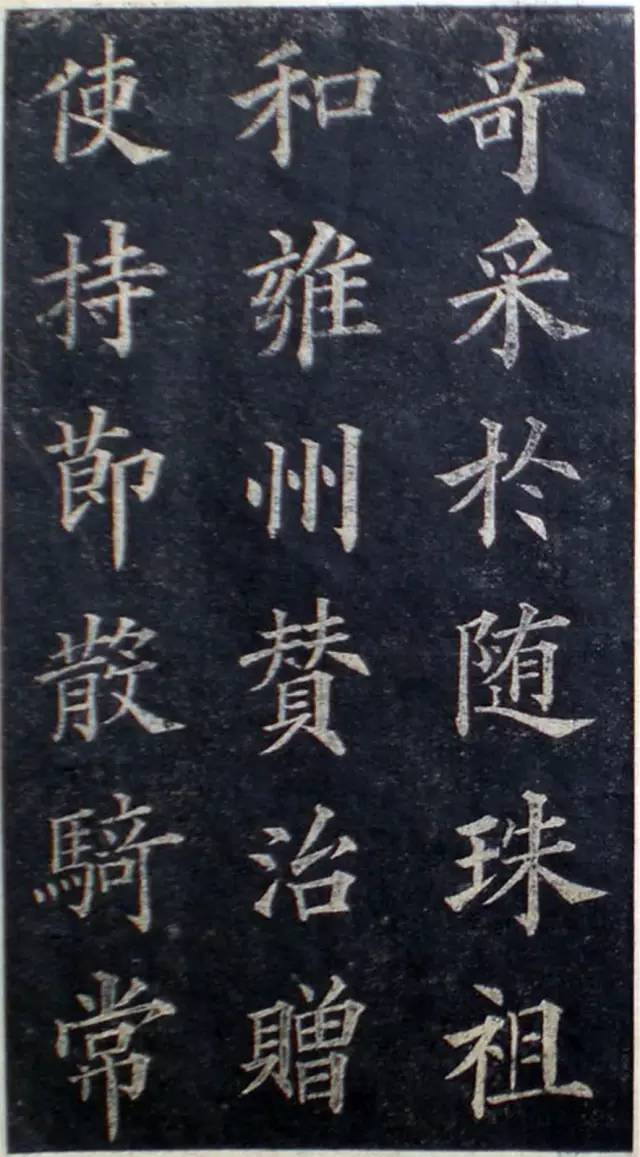 竒采於随珠祖
和雍州賛治贈
使持節散騎常